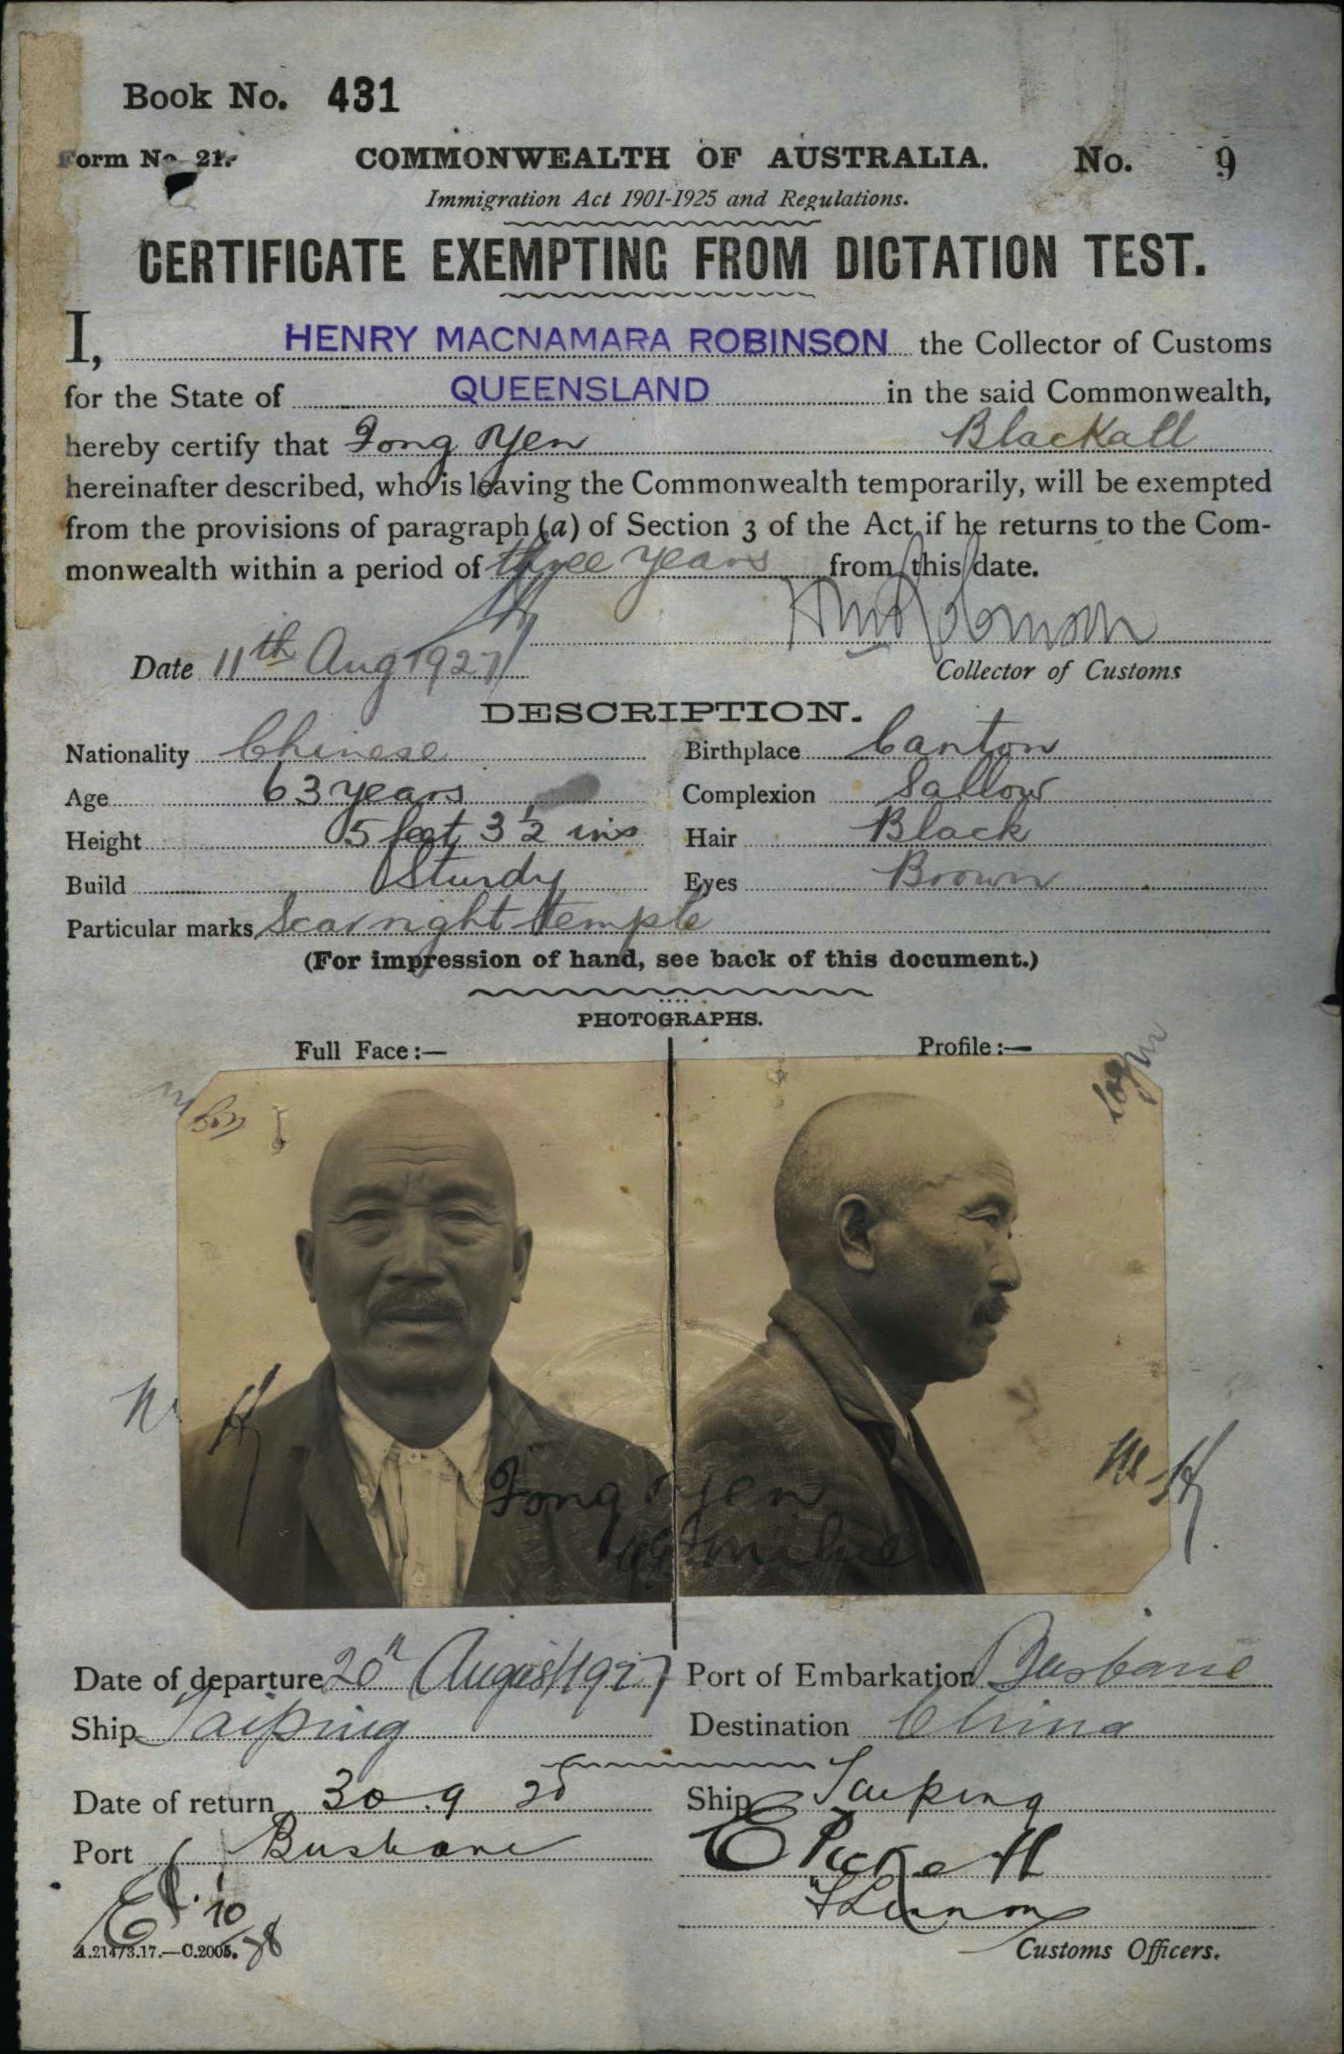 Book No. 431
Form No. 21. COMMONWEALTH OF AUSTRALIA. No. 9
Immigration Act 1901-1925 and Regulations.
CERTIFICATE EXEMPTING FROM DICTATION TEST.
I, HENRY MACNAMARA ROBINSON the Collector of Customs
for the State of QUEENSLAND in the said Commonwealth,
hereby certify that Fong Yen Blackall
hereinafter described, who is leaving the Commonwealth temporarily, will be exempted
from the provisions of paragraph (a) of Section 3 of the Act if he returns to the Com-
monwealth within a period of three years from this date.
Date 11th Aug 1927
Collector of Customs
DESCRIPTION.
Nationality Chinese Birthplace Canton
Age 63 years Complexion Sallow
Height 5 feet 3½ ins Hair Black
Build Sturdy Eyes Brown
Particular marks Scar right temple
(For impression of hand, see back of this document.)
PHOTOGRAPHS.
Full Face:— Profile:—
Fong Yen
Date of departure 20th August 1927 Port of Embarkation Brisbane
Ship Taiping Destination China
Date of return 30.9 28 Ship Taiping
Port Brisbane E Pickett
10
28
A.21473.17.—C.2005.
Customs Officers.